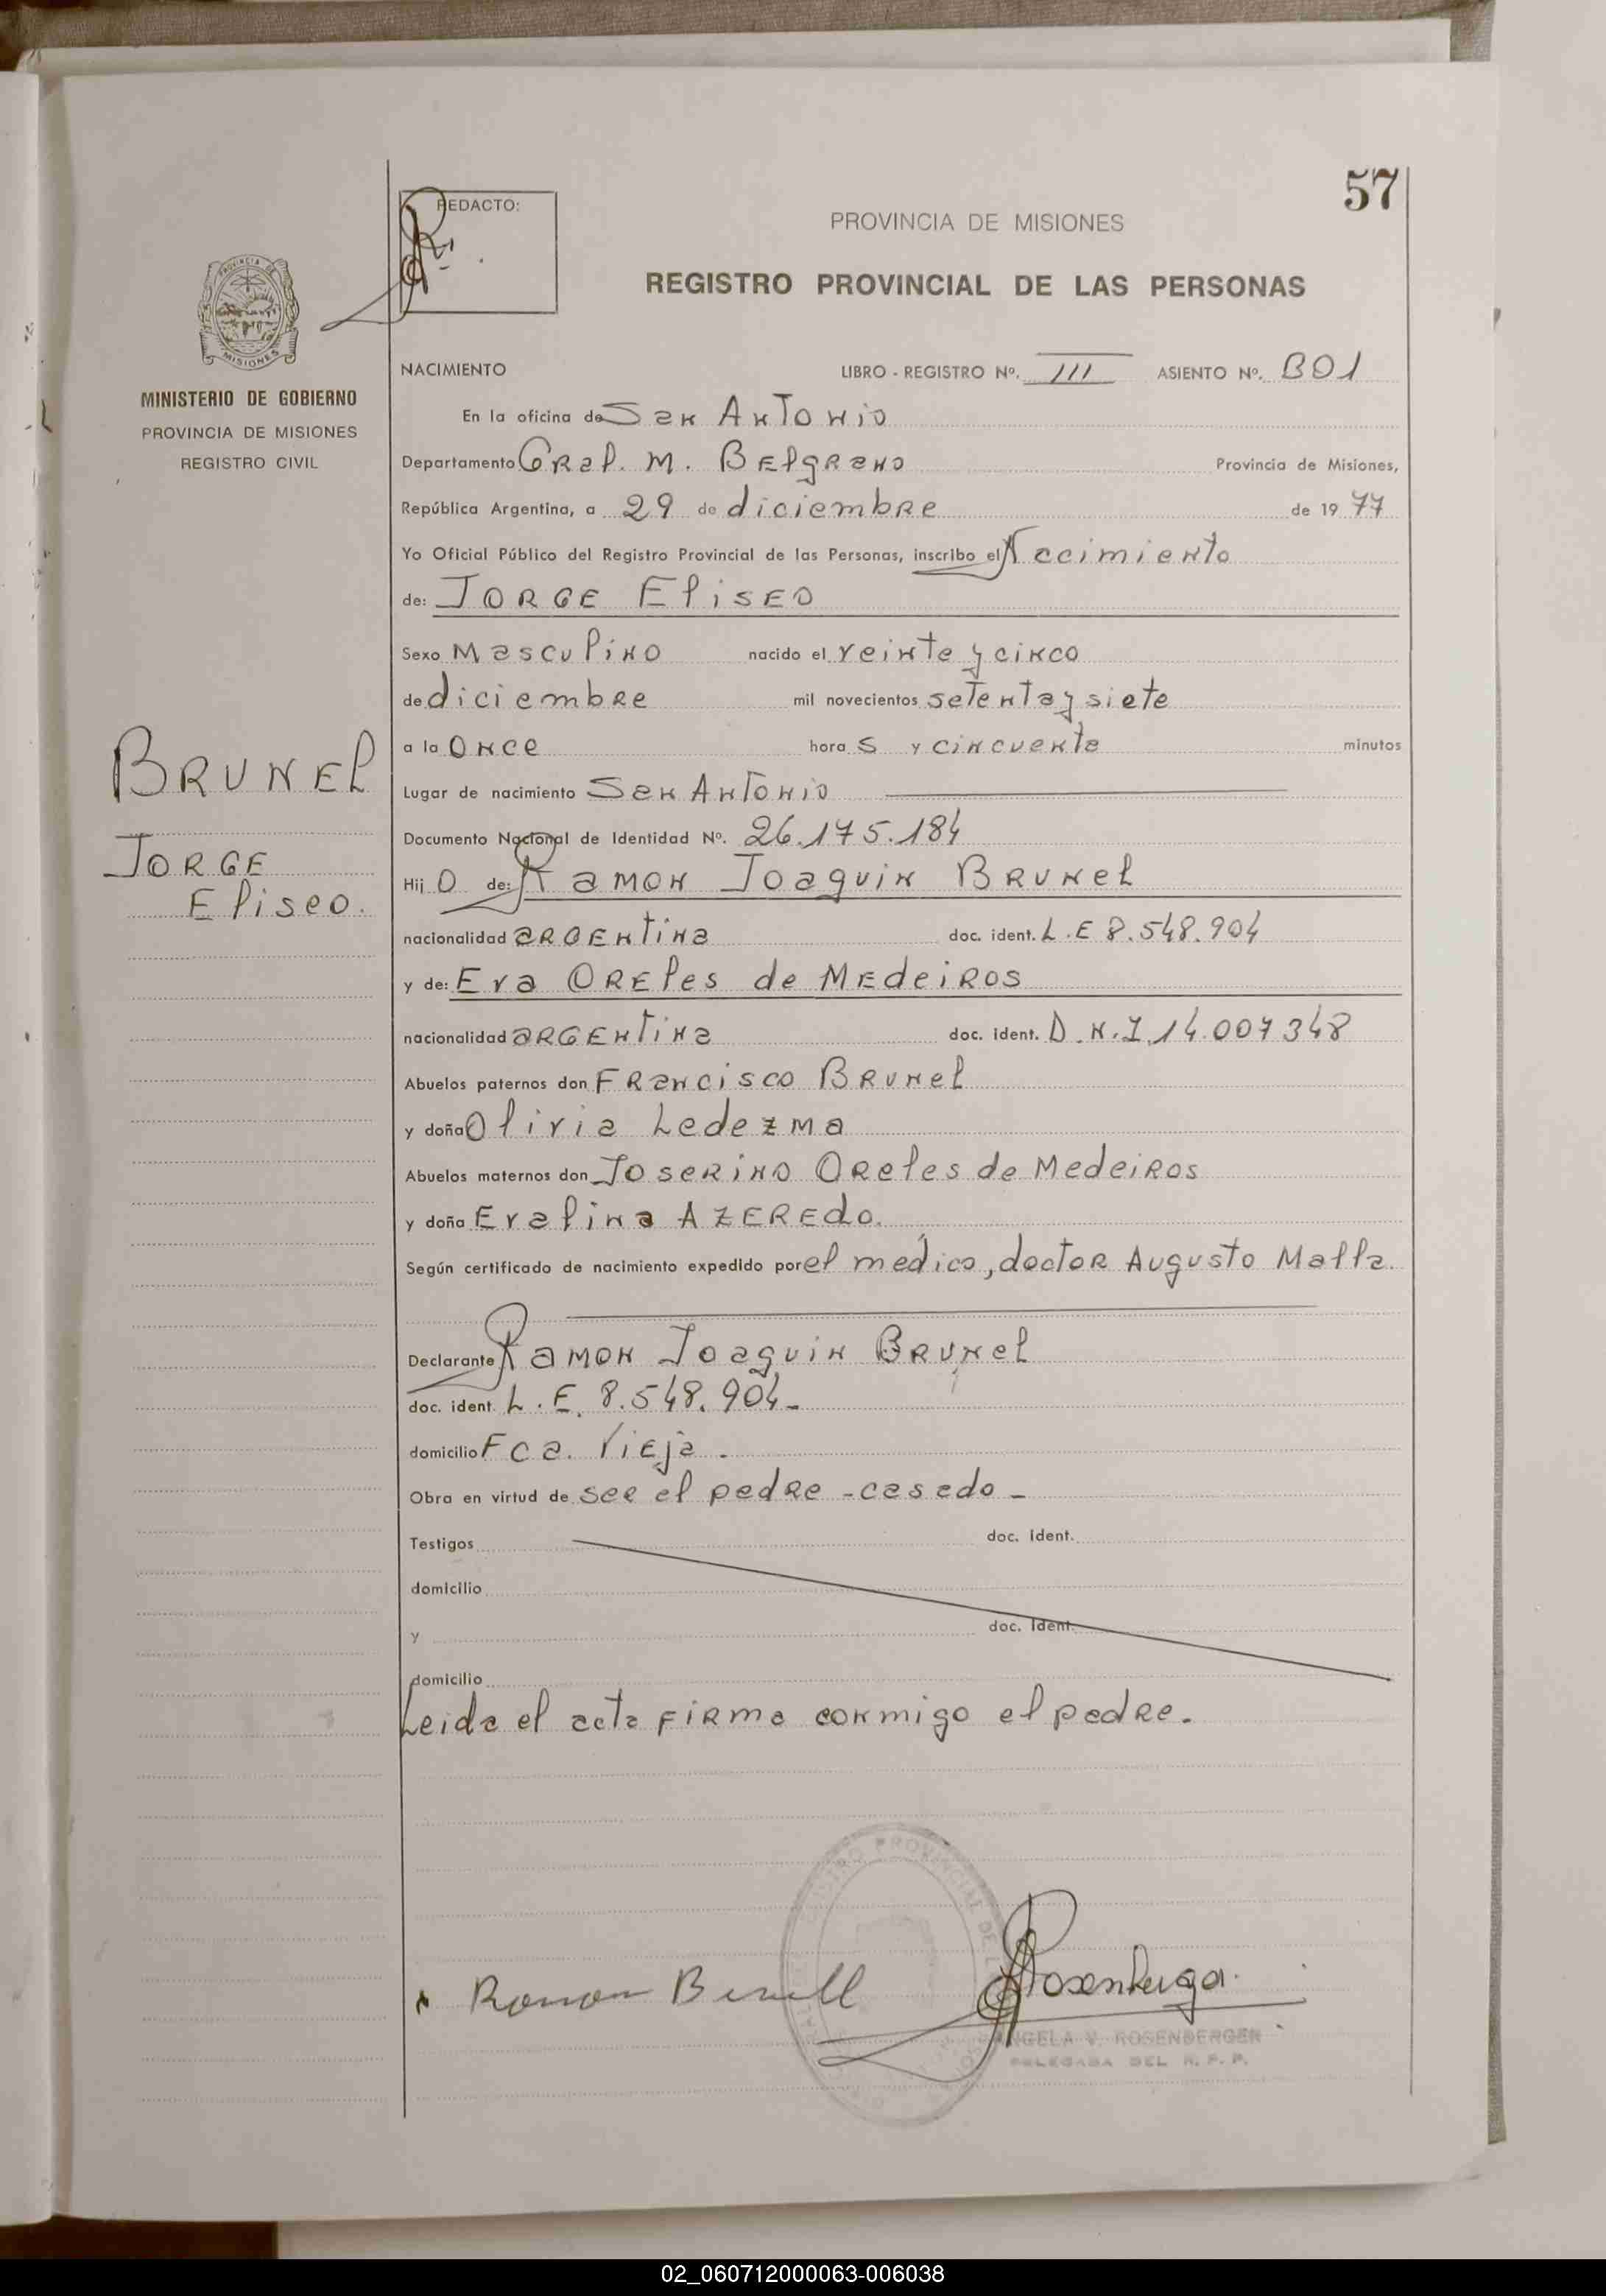 57
REDACTO:
PROVINCIA DE MISIONES
REGISTRO PROVINCIAL DE LAS PERSONAS
PROVINCIA DE
MISIONES
MINISTERIO DE GOBIERNO
PROVINCIA DE MISIONES
REGISTRO CIVIL
NACIMIENTO LIBRO - REGISTRO Nº. III ASIENTO Nº. 801
En la oficina de San Antonio
Departamento Gral. M. Belgrano Provincia de Misiones,
República Argentina, a 29 de diciembre de 1977
Yo Oficial Público del Registro Provincial de las Personas, inscribo el Nacimiento
de: JORGE ELISEO
Sexo Masculino nacido el veinte y cinco
de diciembre mil novecientos setenta y siete
a la once hora s y cincuenta minutos
Lugar de nacimiento San Antonio
Documento Nacional de Identidad Nº. 26.175.184
Hij o de: Ramon Joaquin Brunel
nacionalidad argentina doc. ident. L.E 8.548.904
y de: Eva Oreles de Medeiros
nacionalidad argentina doc. ident. D.N.I. 14.007348
Abuelos paternos don Francisco Brunel
y doña Olivia Ledezma
Abuelos maternos don Joserino Oreles de Medeiros
y doña Evalina Azeredo.
Según certificado de nacimiento expedido por el médico, doctor Augusto Malla.
Declarante Ramon Joaquin Brunel
doc. ident. L.E. 8.548.904-
domicilio Fca. Vieja.
Obra en virtud de ser el padre - casado -
Testigos doc. ident.
domicilio
y doc. ident.
domicilio
Leida el acta firma conmigo el padre.
BRUNEL
JORGE
Eliseo.
Ramon
REGISTRO PROVINCIAL DE
ANGELA V. ROSENBERGER
DELEGADA DEL R. P. P.
02_060712000063-006038